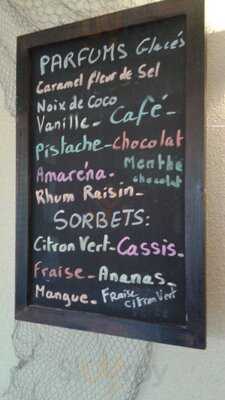 PARFUMS Glacés
Caramel fleur de Sel
Noix de Coco
Vanille - Café -
Pistache - chocolat
Amaréna - Menthe chocolat
Rhum Raisin -
SORBETS:
Citron Vert - Cassis -
Fraise - Ananas -
Mangue - Fraise Citron Vert